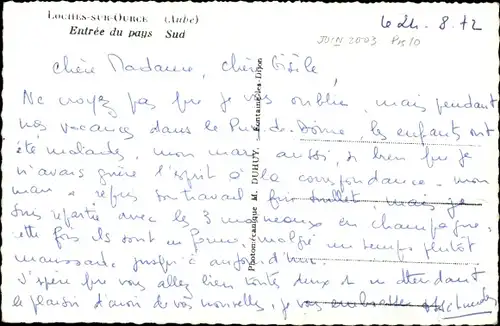 LOCHES-SUR-OURCE (Aube)
Entrée du pays Sud
le 24. 8. 72
JUIN 2003
Chère Madame, chère Gisèle,
Ne croyez pas que je vous oublie, mais pendant
nos vacances dans le Puy de Dôme, les enfants ont
été malades, mon mari aussi, si bien que je
n'avais guère l'esprit à la correspondance. Mon
mari a repris son travail fin juillet, mais je
suis repartie avec les 3 morceaux en champagne,
cette fois ils sont en forme, malgré un temps plutôt
maussade jusqu'à aujourd'hui.
J'espère que vous allez bien toutes deux et en attendant
le plaisir d'avoir de vos nouvelles, je vous embrasse
Photomécanique M. DUHUY. Fontaine-les-Dijon